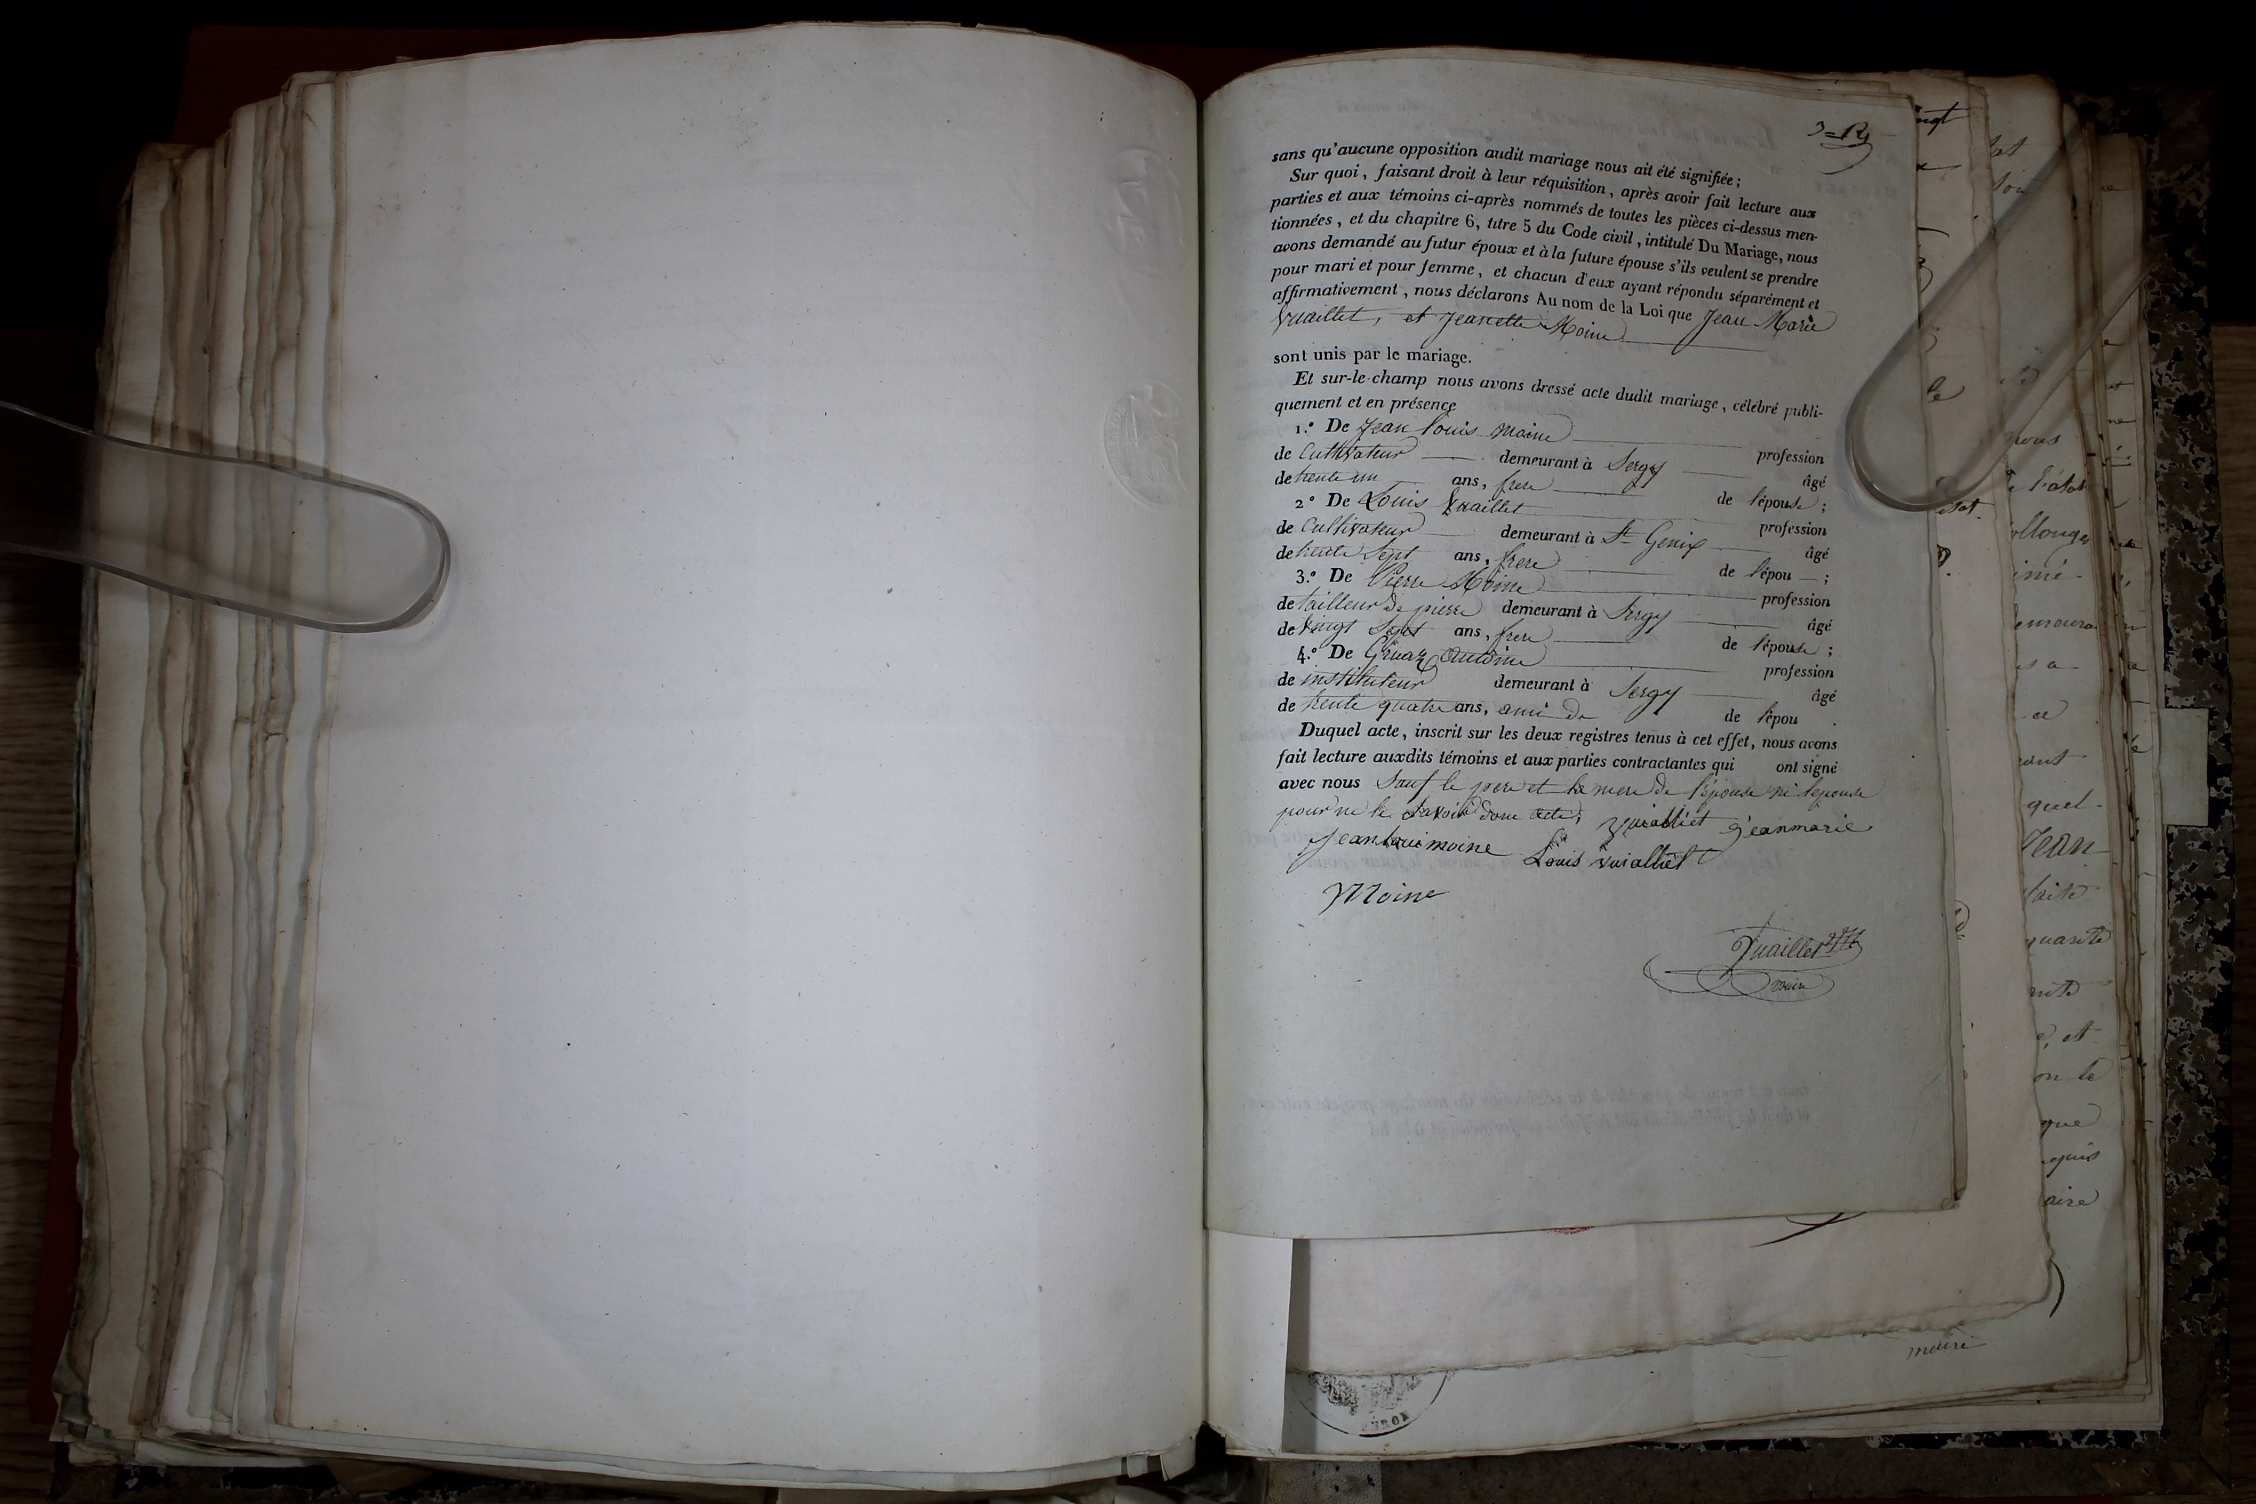 sans qu'aucune opposition audit mariage nous ait été signifiée;
Sur quoi, faisant droit à leur réquisition, après avoir fait lecture aux
parties et aux témoins ci-après nommés de toutes les pièces ci-dessus men-
tionnées, et du chapitre 6, titre 5 du Code civil, intitulé Du Mariage, nous
avons demandé au futur époux et à la future épouse s'ils veulent se prendre
pour mari et pour femme, et chacun d'eux ayant répondu séparément et
affirmativement, nous déclarons Au nom de la Loi que Jean Marie
Vuaillet, et Jeanette Moine
sont unis par le mariage.
Et sur-le-champ nous avons dressé acte dudit mariage, célébré publi-
quement et en présence
1.º De Jean Louis Moine profession
de Cultivateur demeurant à Sergy âgé
de trente un ans, frere de l'épouse;
2º De Louis Vuaillet profession
de Cultivateur demeurant à St Genix âgé
de trente Sept ans, frere de l'épou ;
3.º De Pierre Moine profession
de tailleur de pierre demeurant à Sergy âgé
de vingt Sept ans, frere de l'épouse;
4.º De Gruaz Antoine profession
de instituteur demeurant à Sergy âgé
de trente quatre ans, ami de de l'épou .
Duquel acte, inscrit sur les deux registres tenus à cet effet, nous avons
fait lecture auxdits témoins et aux parties contractantes qui ont signé
avec nous Sauf le pere et la mere de l'épouse ni lepouse
pour ne le Savoir dont acte;
Vuialliet jeanmarie
Jean Louis moine Louis vuialliet
Moine
Vuaillet
maire
maire